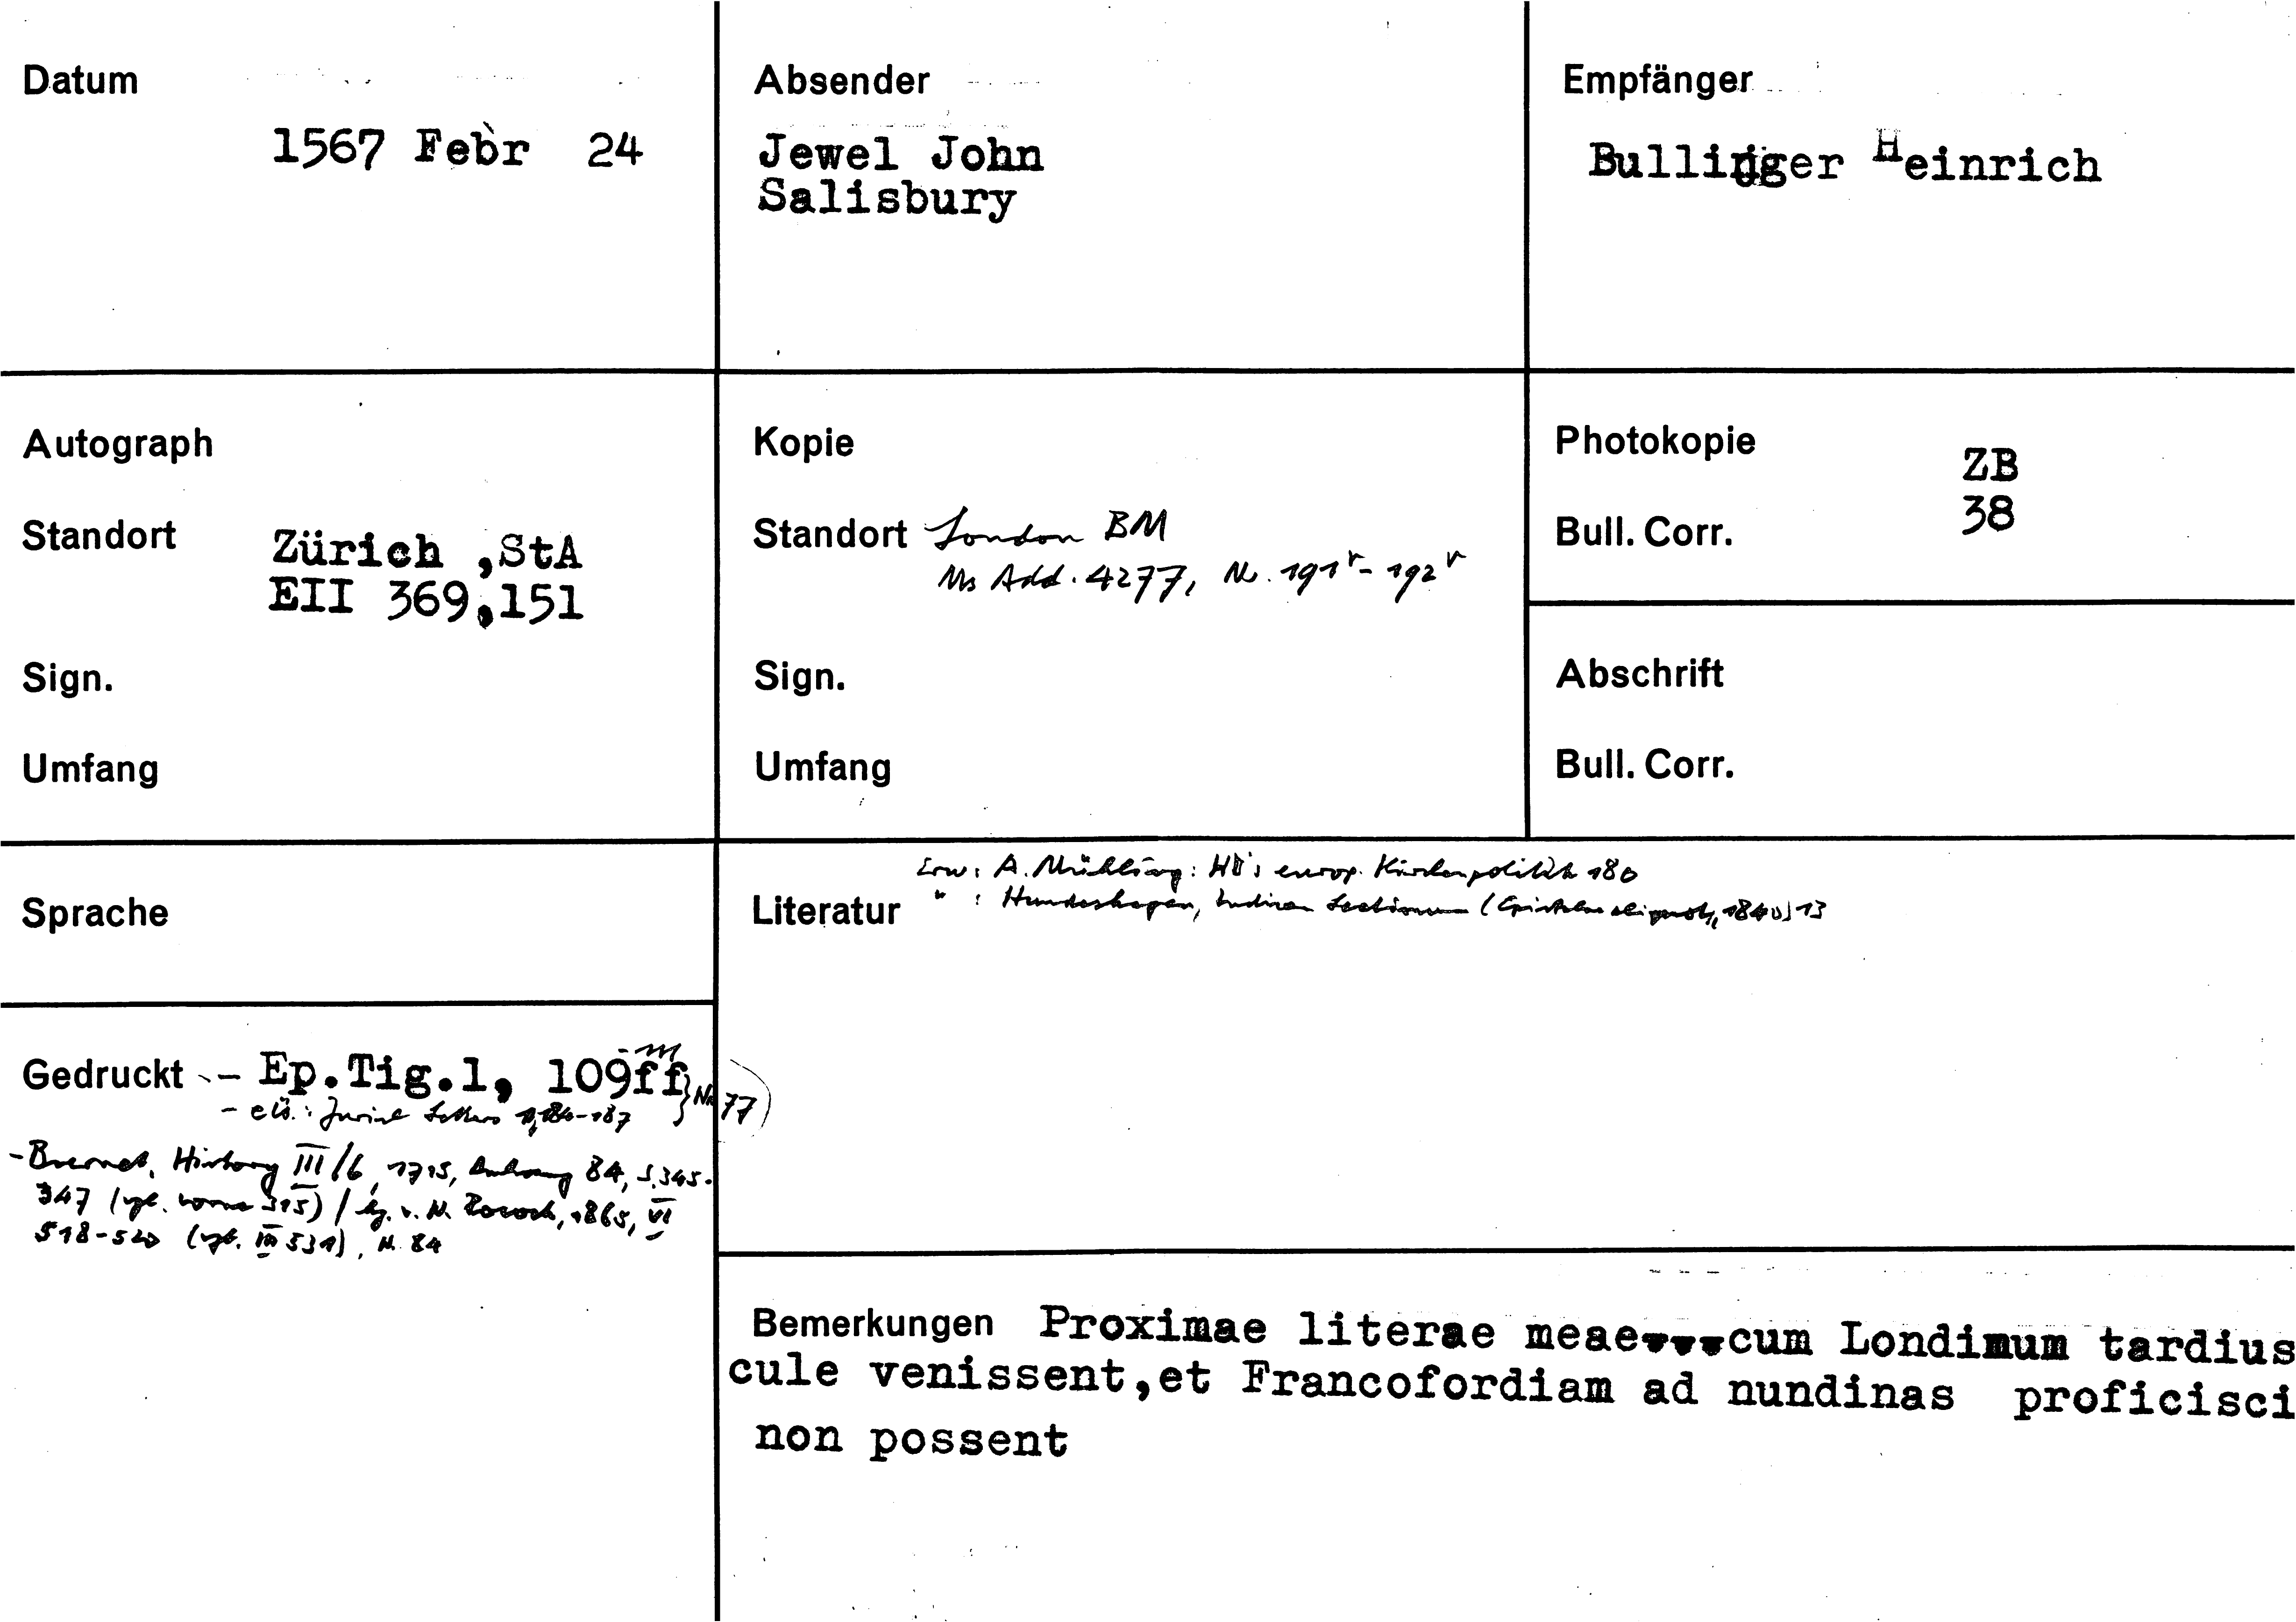 Datum
1567 Febr 24
Absender
Jewel John
Salisbury
Empfänger
Bullinger Heinrich
Autograph
Standort
Zürich ,StA
EII 369,151
Sign.
Umfang
Kopie
Standort London BM
Ms Add. 4277, Nr. 191r - 192v
Sign.
Umfang
Photokopie
ZB
Bull. Corr.
38
Abschrift
Bull. Corr.
Sprache
Literatur
Erw: A. Mühling: HB's europ. Kirchenpolitik 180
" : Hundeshagen, Lectionum 13
Gedruckt - Ep.Tig.1, 109ff
- eÜ.: Zurich Letters 1, 184-187 } Nr. 77
- Burnet, History III/6, 1715, Anhang 84, S.345-
347 (vgl. vorne 315) / hg. v. N. Pocock, 1865, VI
518-520 (vgl. III 531), N. 84
Bemerkungen Proximae literae meae cum Londinum tardius
cule venissent,et Francofordiam ad nundinas proficisci
non possent